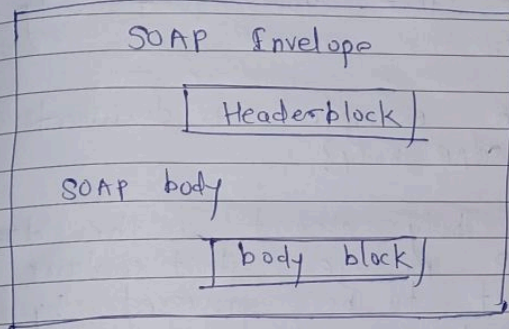 SOAP Envelope
Headerblock
SOAP body
body block